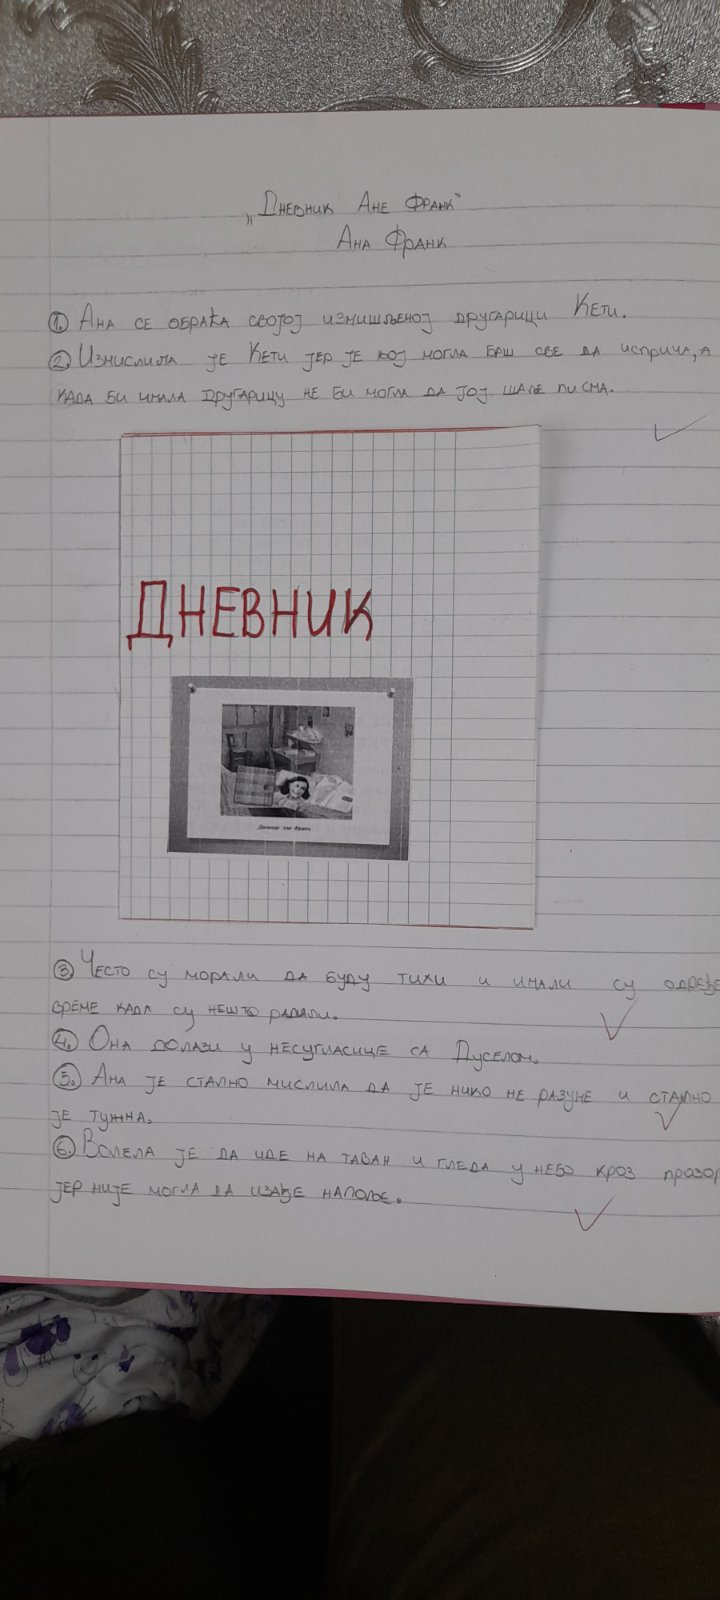 „Дневник Ане Франк“
Ана Франк
1. Ана се обраћа својој измишљеној другарици Кети.
2. Измислила је Кети јер је њој могла баш све да исприча, а
када би имала другарицу не би могла да јој шаље писма.
ДНЕВНИК
Дневник Ане Франк
3. Често су морали да буду тихи и имали су одређе
време када су нешто радили.
4. Она долази у несугласице са Дуселом.
5. Ана је стално мислила да је нико не разуме и стално
је тужна.
6. Волела је да иде на таван и гледа у небо кроз прозор
јер није могла да изађе напоље.